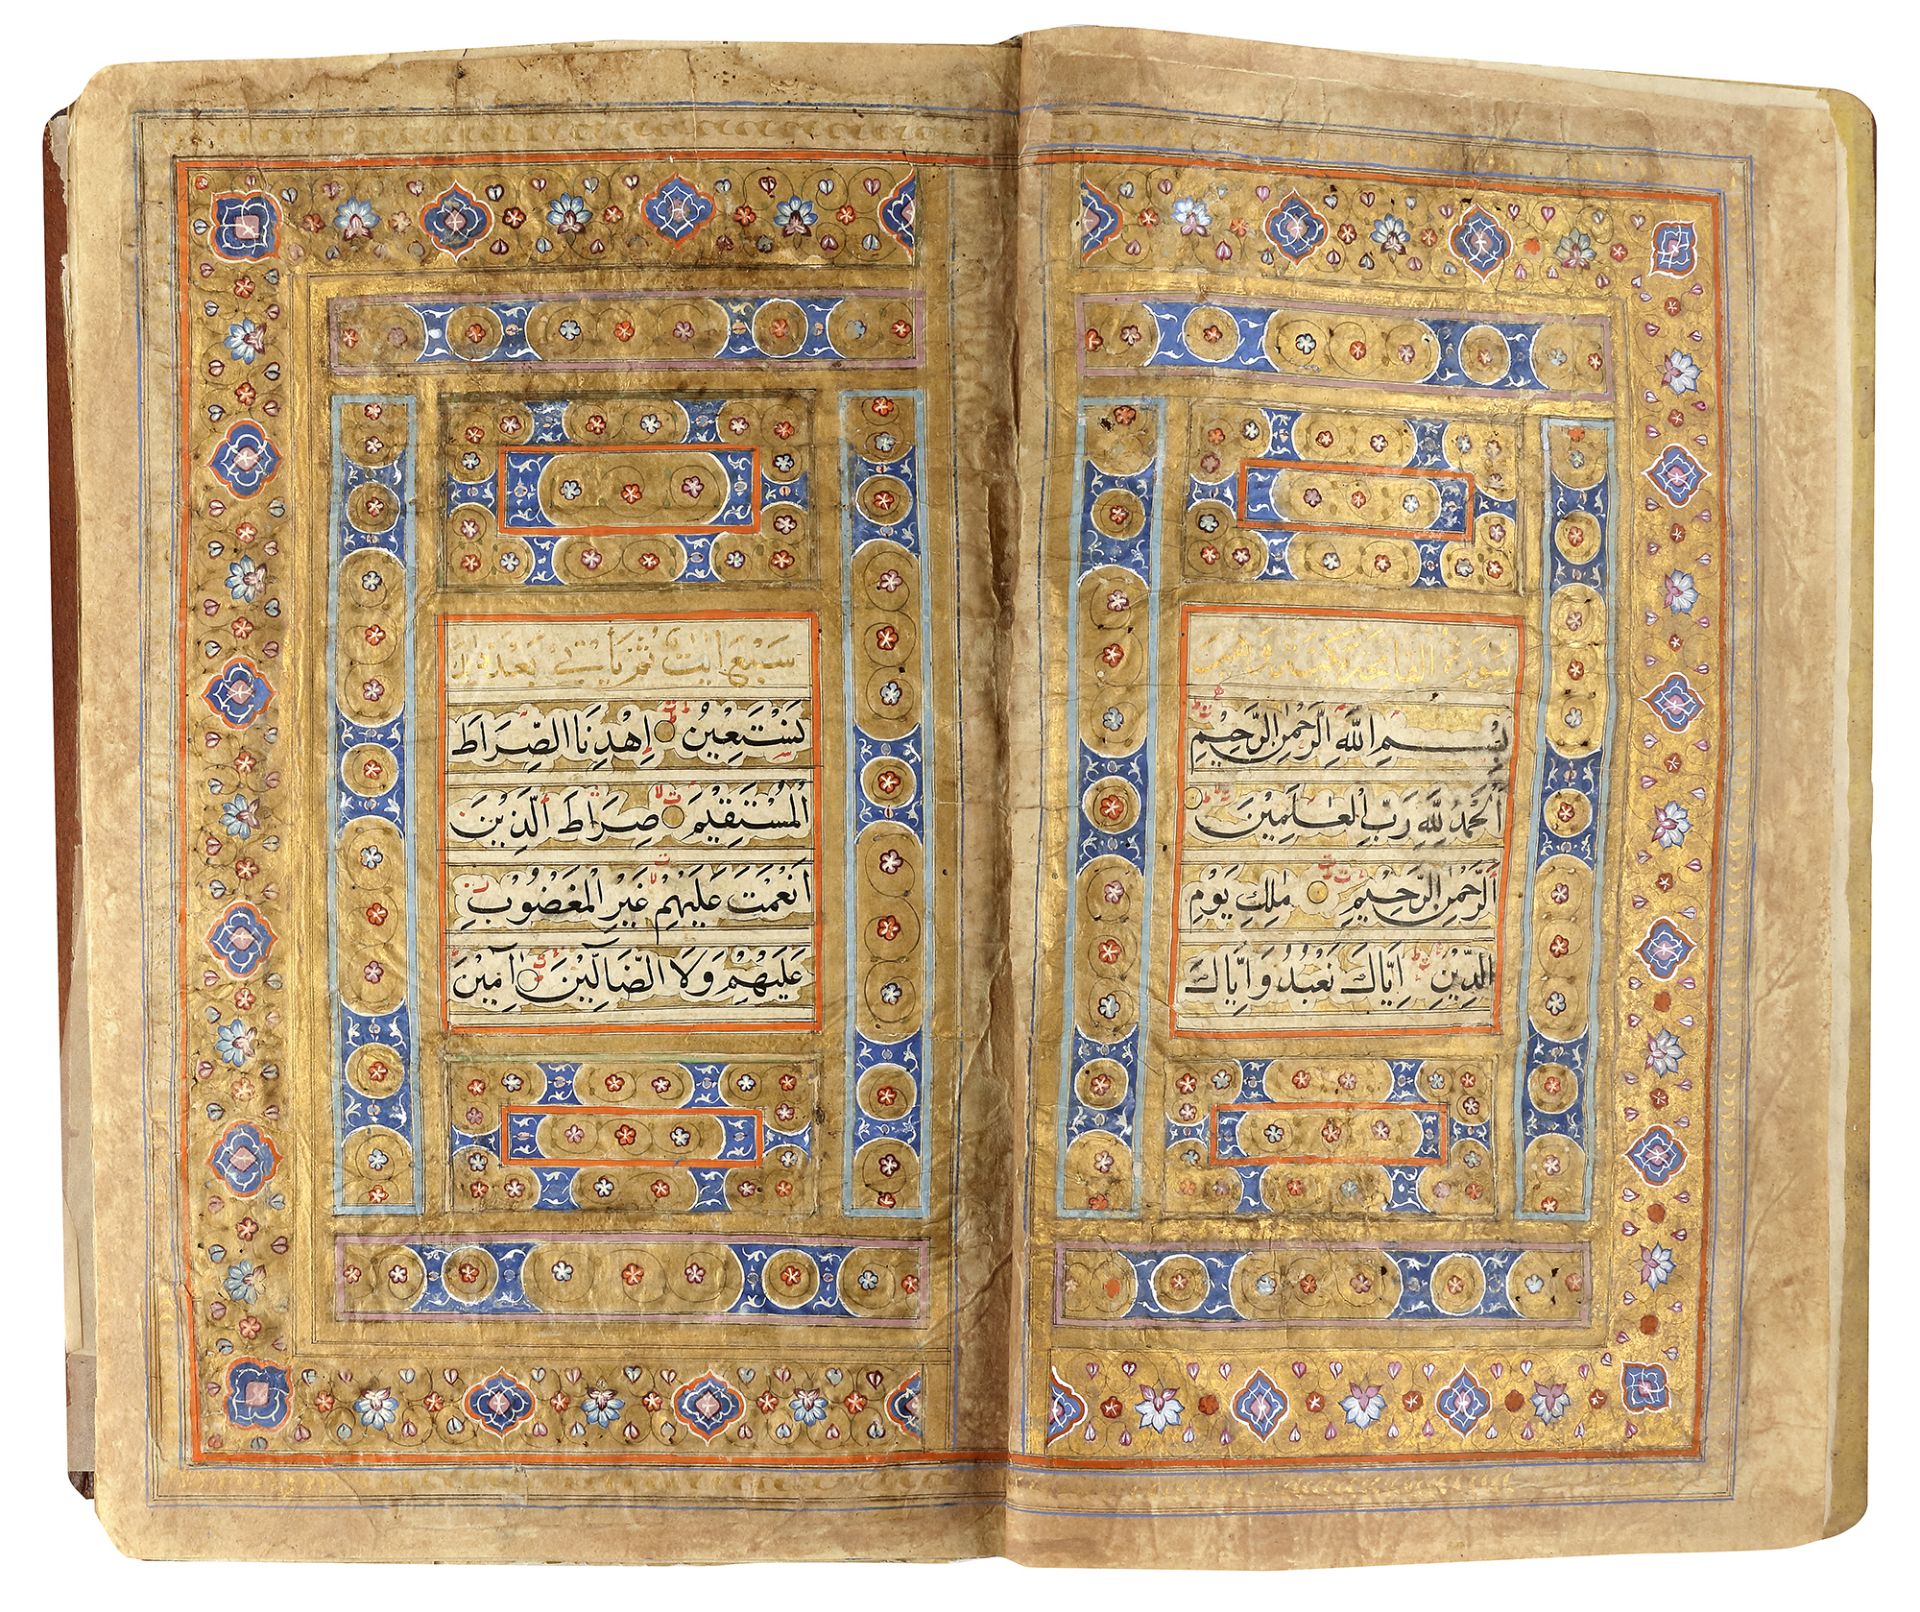 سورة الفاتحة مكية وهى
بِسْمِ اللّٰهِ الرَّحْمٰنِ الرَّحِيْمِ
اَلْحَمْدُ لِلّٰهِ رَبِّ الْعٰلَمِيْنَ
اَلرَّحْمٰنِ الرَّحِيْمِ مٰلِكِ يَوْمِ
الدِّيْنِ اِيَّاكَ نَعْبُدُ وَاِيَّاكَ
سبع ايت
نَسْتَعِيْنُ اِهْدِنَا الصِّرَاطَ
الْمُسْتَقِيْمَ صِرَاطَ الَّذِيْنَ
اَنْعَمْتَ عَلَيْهِمْ غَيْرِ الْمَغْضُوْبِ
عَلَيْهِمْ وَلَا الضَّآلِّيْنَ اٰمِيْنَ